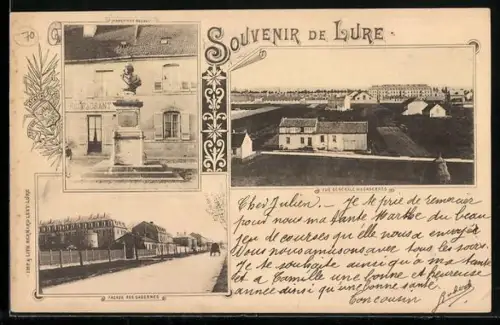 SOUVENIR DE LURE.
VUE GÉNÉRALE DES CASERNES
FAÇADE DES CASERNES
Cher Julien. Je te prie de remercier
pour nous ma tante Marthe du beau
jeu de courses qu'elle nous a envoyé
Nous nous amusons avec tous les soirs.
Je te souhaite ainsi qu'à ma tante
et à Camille une bonne et heureuse
année ainsi qu'une bonne santé.
Ton cousin